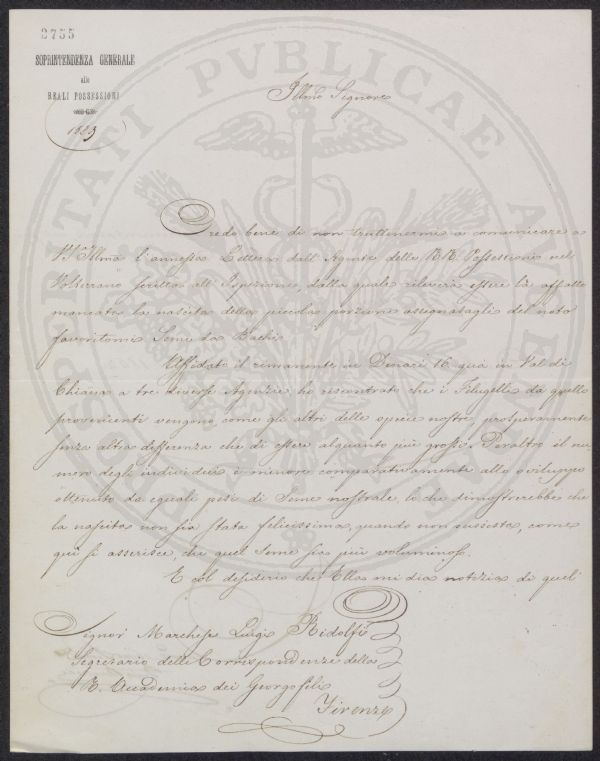 2755
SOPRINTENDENZA GENERALE
alle
REALI POSSESSIONI
1823
Illmo Signore
Credo bene di non trattenermi a comunicare a
VS Illma l'annessa Lettera dall'Agente delle RR. Possessioni nel
Volterrano scritta all'Ispezione, dalla quale rileverà essere là affatto
mancata la nascita della piccola porzione assegnatagli del noto
favoritomi Seme da Bachi.
Affidato il rimanente in Denari 16 quà in Val di
Chiana a tre diverse Agenzie ho riscontrato che i Filugelli da quello
provenienti vengono come gli altri della specie nostra prosperamente
senza altra differenza che di essere alquanto più grossi. Peraltro il nu=
mero degli individui è minore comparativamente allo sviluppo
ottenuto da eguale peso di Seme nostrale, lo che dimostrerebbe che
la nascita non sia stata felicissima, quando non sussista, come
quì si asserisce, che quel Seme sia più voluminoso.
E col desiderio che Ella mi dia notizia di quel
Signor Marchese Luigi Ridolfi
Segretario delle Corrispondenze della
R. Accademia dei Georgofili
Firenze
PROSPERITATI PVBLICAE AVGENDAE